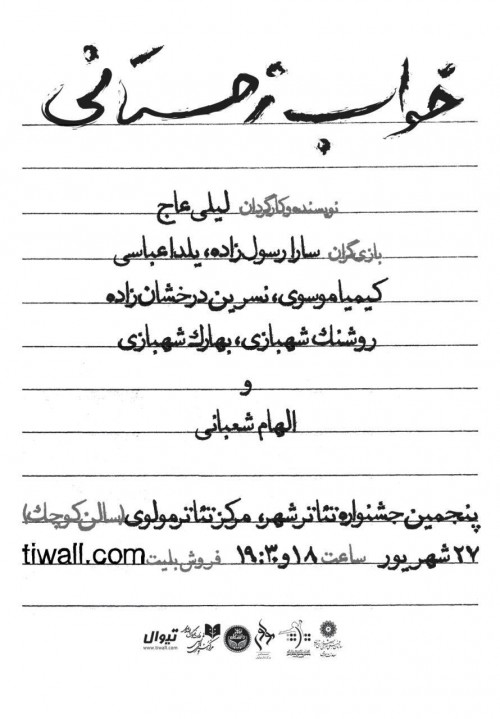 خواب زمستانی
نویسنده و کارگردان لیلی عاج
بازیگران سارا رسول زاده، یلدا عباسی
کیمیا موسوی، نسرین درخشان زاده
روشنک شهبازی، بهارک شهبازی
و
الهام شعبانی
پنجمین جشنواره تئاتر شهر، مرکز تئاتر مولوی (سالن کوچک)
۲۷ شهریور ساعت ۱۸ و ۱۹:۳۰ فروش بلیت tiwall.com
تیوال
www.tiwall.com